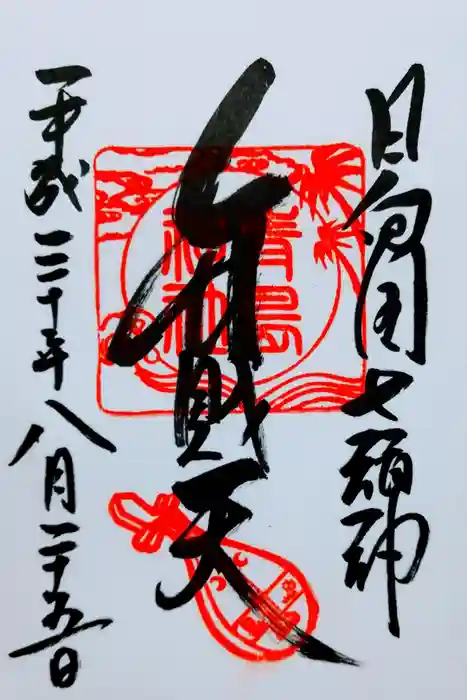 日向国七福神
弁財天
青島神社
平成三十年八月二十五日